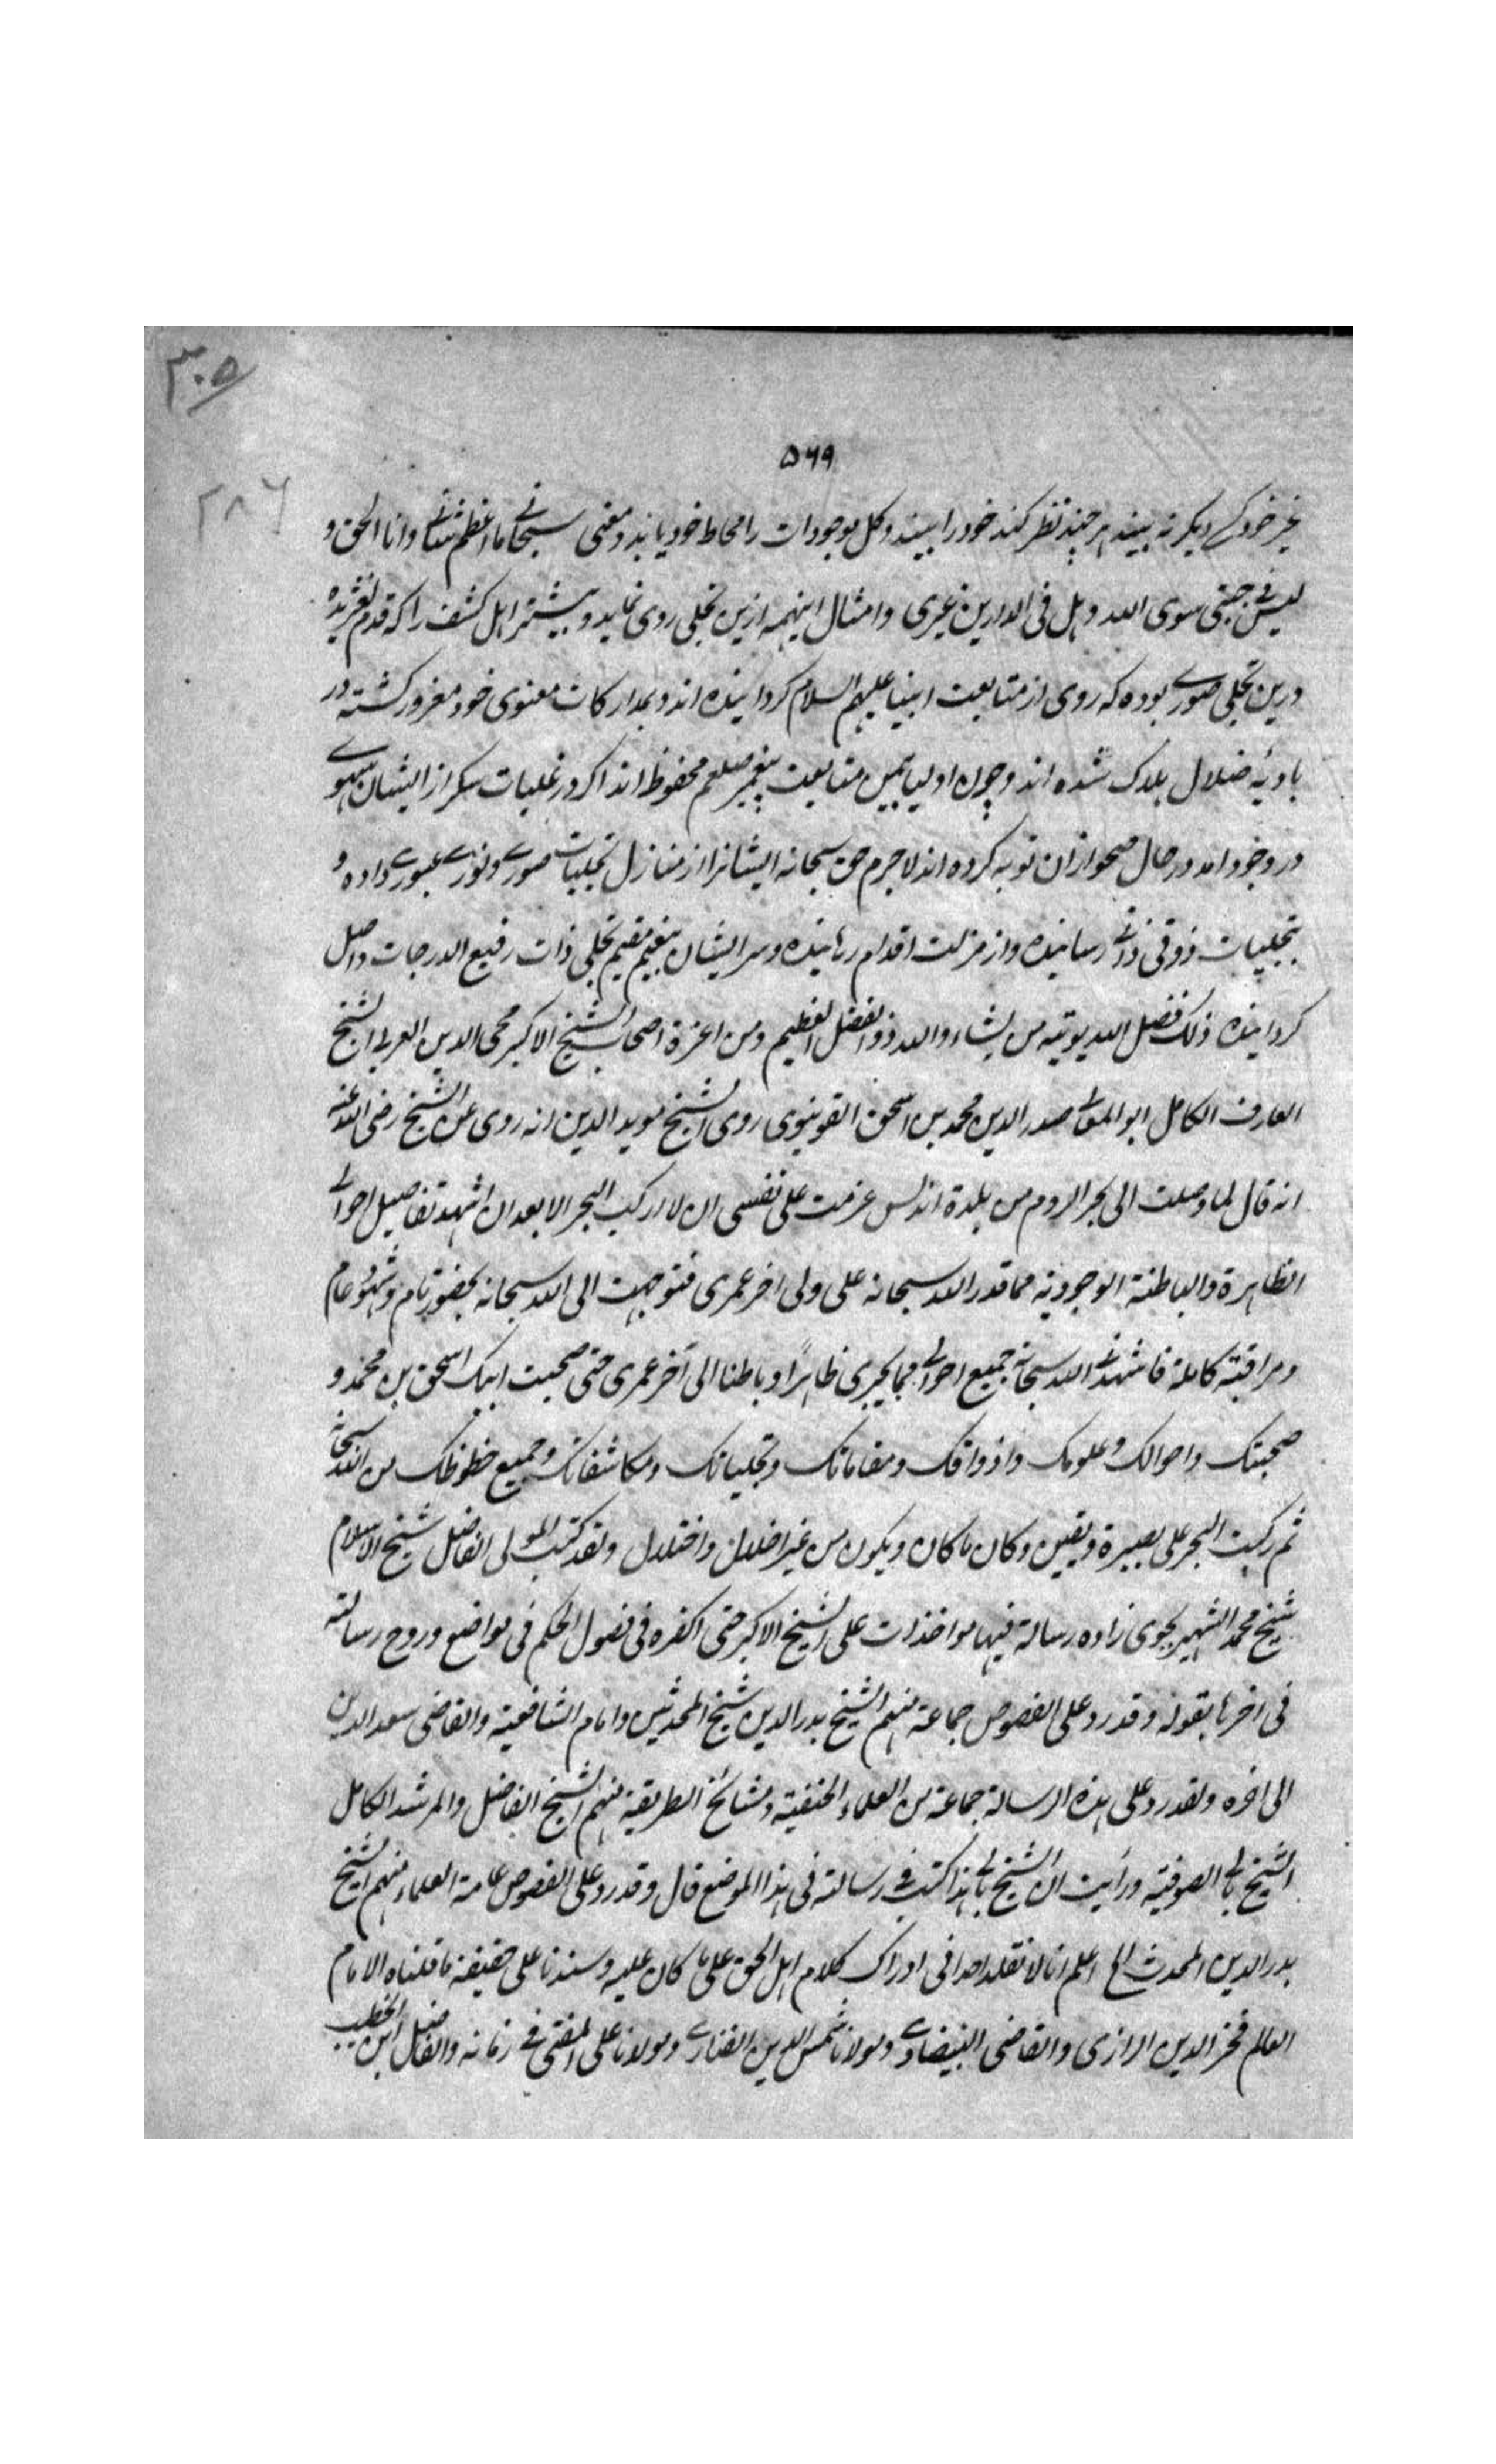 ٣٠٥
۵۶۹
٢٨٦
غیر خود کسے دیگر نہ بیند ہر چند نظر کند خود را بیند و کل موجودات را محاط خود یابد و معنی سبحانی ما اعظم شانی وانا الحق و
لیس فی جبتی سوی اللہ و ہل فی الدارین غیری و امثال اینہمہ ازین تجلی روی نماید و بیشتر اہل کشف را کہ قدم لغزیدہ
درین تجلی صوری بودہ کہ روی از متابعت انبیا علیہم السلام گردانیدہ اند و بمدارکات معنوی خود مغرور گشتہ در
بادیۂ ضلال ہلاک شدہ اند و چون اولیا بیمن متابعت پیغمبر صلعم محفوظ اند اگر در غلبات سکر از ایشان سہوے
در وجود امد در حال صحو ازان توبہ کردہ اند لا جرم حق سبحانہ ایشانرا از منازل تجلیات صورے و نورے عبورے دادہ و
بتجلیات ذوقی ذاتی رسانیدہ و از مزلت اقدام رہانیدہ و سر ایشان بنعیم مقیم تجلی ذات رفیع الدرجات واصل
گردانیدہ ذلک فضل اللہ یوتیہ من یشاء واللہ ذو الفضل العظیم ومن اعزة اصحاب الشیخ الاکبر محی الدین العربی الشیخ
العارف الکامل ابو المعالی صدر الدین محمد بن اسحق القونیوی روی الشیخ موید الدین انہ روی عن الشیخ رضی اللہ عنہ
انہ قال لما وصلت الی بحر الروم من بلدة اندلس عزمت علی نفسی ان لا ارکب البحر الا بعد ان اشہد تفاصیل احوالی
الظاہرة والباطنة الوجودیة مما قدر اللہ سبحانہ علی ولی اخر عمری فتوجہت الی اللہ سبحانہ بحضور تام و شہود عام
ومراقبة کاملة فاشہدنی اللہ سبحانہ جمیع احوالی مما یجری ظاہرًا و باطنا الی آخر عمری حتی صحبت ابیک اسحق بن محمد و
صحبتک واحوالک وعلومک واذواقک ومقاماتک وتجلیاتک ومکاشفاتک وجمیع حظوظک من اللہ سبحانہ
ثم رکبت البحر علی بصیرة ویقین وکان ما کان ویکون من غیر اخلال واختلال ولقد کتب المولی الفاضل شیخ الاسلام
شیخ محمد الشہیر بجوی زادہ رسالة فیہا مواخذات علی الشیخ الاکبر حتی اکفرہ فی فصول الحکم فی مواضع وروح رسالتہ
فی اخرہا بقولہ وقد رد علی الفصوص جماعة منہم الشیخ بدر الدین شیخ المحدثین وامام الشافعیة والقاضی سعد الدین
الی اخرہ ولقد رد علی ہذہ الرسالة جماعة من العلماء الحنفیة ومشائخ الطریقة منہم الشیخ الفاضل والمرشد الکامل
الشیخ بالی الصوفیة ورأیت ان الشیخ بالی ہذا کتب فی رسالتہ فی ہذا الموضع قال وقد رد علی الفصوص عامة العلماء منہم الشیخ
بدر الدین المحدث الخ اعلم انا لا نقلد احدا فی ادراک کلام اہل الحق علی ما کان علیہ وسندنا علی حقیقة ما قلناہ الامام
العالم فخر الدین الرازی والقاضی البیضاوے ومولانا شمس الدین الفناری ومولانا علی المفتی فی زمانہ والفاضل ابن الخطیب